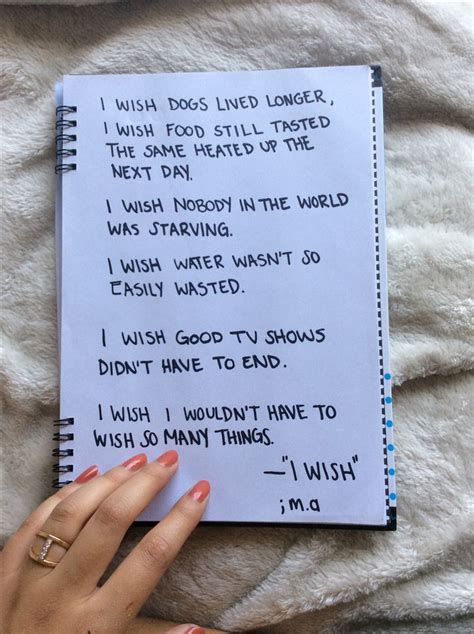 I WISH DOGS LIVED LONGER,
I WISH FOOD STILL TASTED
THE SAME HEATED UP THE
NEXT DAY.
I WISH NOBODY IN THE WORLD
WAS STARVING.
I WISH WATER WASN'T SO
EASILY WASTED.
I WISH GOOD TV SHOWS
DIDN'T HAVE TO END.
I WISH I WOULDN'T HAVE TO
WISH SO MANY THINGS.
—"I WISH"
;m.a